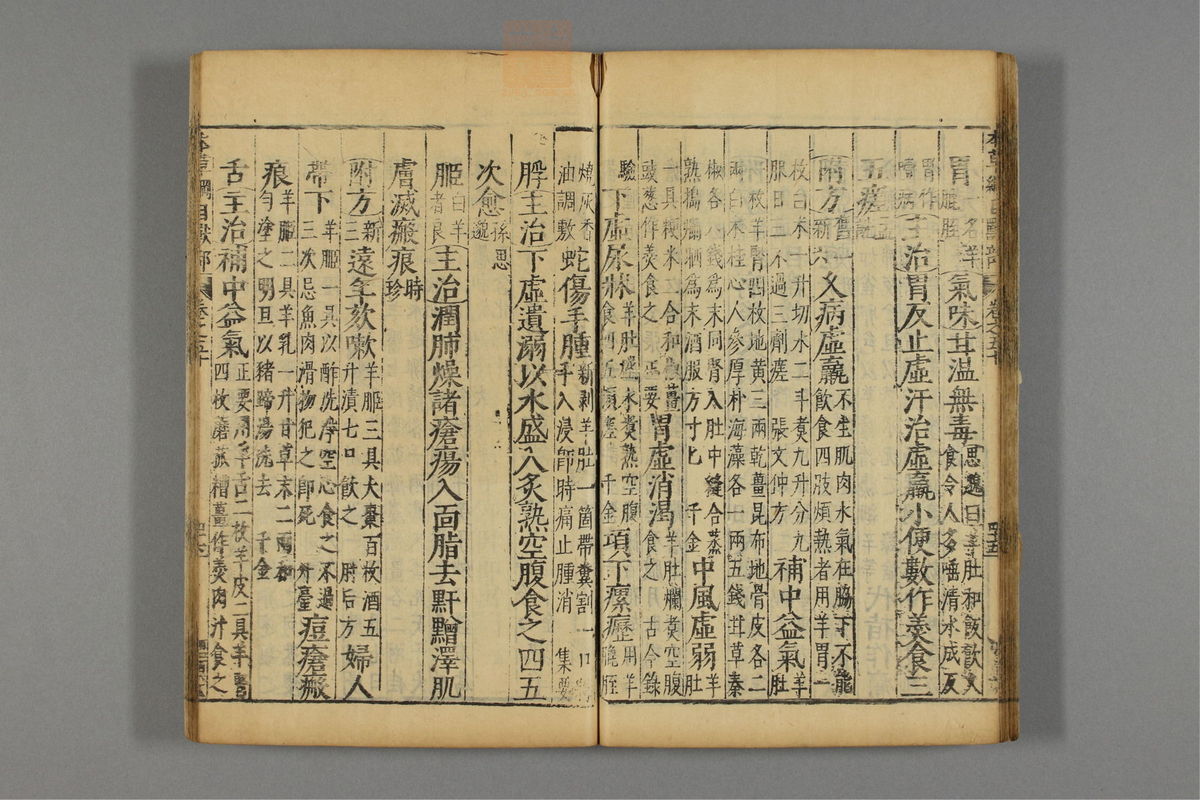 本草綱目獸部 卷之五十
胃一名羊膍胵氣味甘溫無毒思邈曰羊肚和飯飲久食令人多唾清水成反
胃作噎病主治胃反止虛汗治虛羸小便數作羹食三
五瘥孟詵
附方舊一新六久病虛羸不生肌肉水氣在脇下不能飲食四肢煩熱者用羊胃一
枚白朮一升切水二斗煮九升分九服日三不過三劑瘥 張文仲方補中益氣羊肚
一枚羊腎四枚地黃三兩乾薑昆布地骨皮各二兩白朮桂心人參厚朴海藻各一兩五錢甘草秦
椒各六錢爲末同腎入肚中縫合蒸熟搗爛晒爲末酒服方寸匕 千金中風虛弱羊肚
一具粳米二合和椒薑豉葱作羹食之 正要胃虛消渴羊肚爛煮空腹食之 古今錄
驗下虛尿牀羊肚盛水煮熟空腹食四五頓瘥 千金項下瘰癧用羊膍胵
燒灰香油調敷蛇傷手腫新剝羊肚一箇帶糞割一口將手入浸即時痛止腫消 集要
脬主治下虛遺溺以水盛入炙熟空腹食之四五
次愈孫思邈
胰白羊者良主治潤肺燥諸瘡瘍入面脂去䵟䵴澤肌
膚滅瘢痕時珍
附方新三遠年欬嗽羊胰三具大棗百枚酒五升漬七日飲之 肘后方婦人
帶下羊胰一具以酢洗淨空心食之不過三次忌魚肉滑物犯之即死 外臺痘瘡瘢
痕羊胰二具羊乳一升甘草末二兩和勻塗之明旦以豬蹄湯洗去 千金
舌主治補中益氣正要用羊舌二枚羊皮二具羊腎四枚蘑菰糟薑作羹肉汁食之
本草綱目獸部 卷之五十